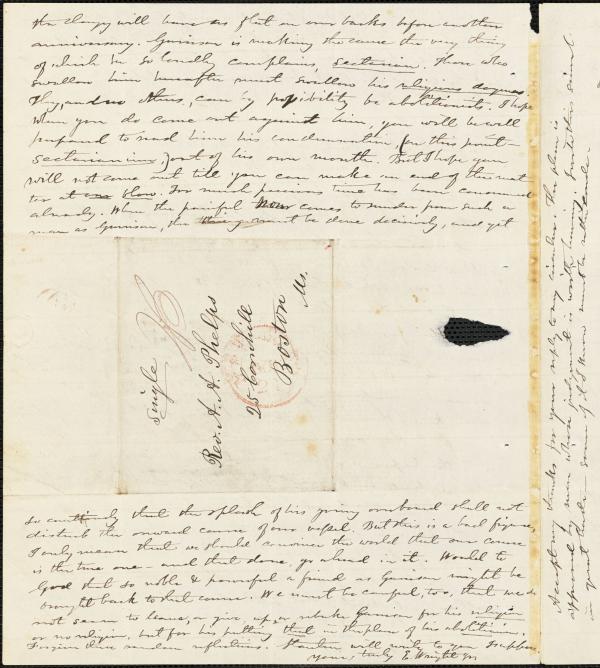 the clergy will have us flat on our backs before another
anniversary. Garrison is making the cause the very thing
of which he so loudly complains, sectarian. Those who
swallow him hereafter must swallow his religious dogmas.
They, and no others, can by possibility be abolitionists. I hope
when you do come out against him, you will be well
prepared to read him his condemnation (on this point-
sectarianism) out of his own mouth. But I hope you
will not come out till you can make an end of this mat
ter at one blow. Too much precious time has been consumed
already. When the painful hour comes to sunder from such a
man as Garrison, the thing must be done decisively, and yet
single
Rev. A. A. Phelps
25 Cornhill
Boston
Ms.
so cautiously that the splash of his going overboard shall not
disturb the onward course of our vessel. But this is a bad figure,
I only mean that we should convince the world that our course
is the true one - and that done, go ahead in it. Would to
God that so noble & powerful a friend as Garrison might be
brought back to that course. We must be careful, too, that we do
not seem to leave, or give up, or rebuke Garrison for his religion
or no religion, but for his putting that in the place of his abolitionism.
Forgive these random reflections. Stanton will write to you I suppose.
Yours, truly E. Wright Jr.
Accept my thanks for your reply to my circular. The plan is
approved by men whose judgment is worth having, but this scient
in great haste - some of it I know must be